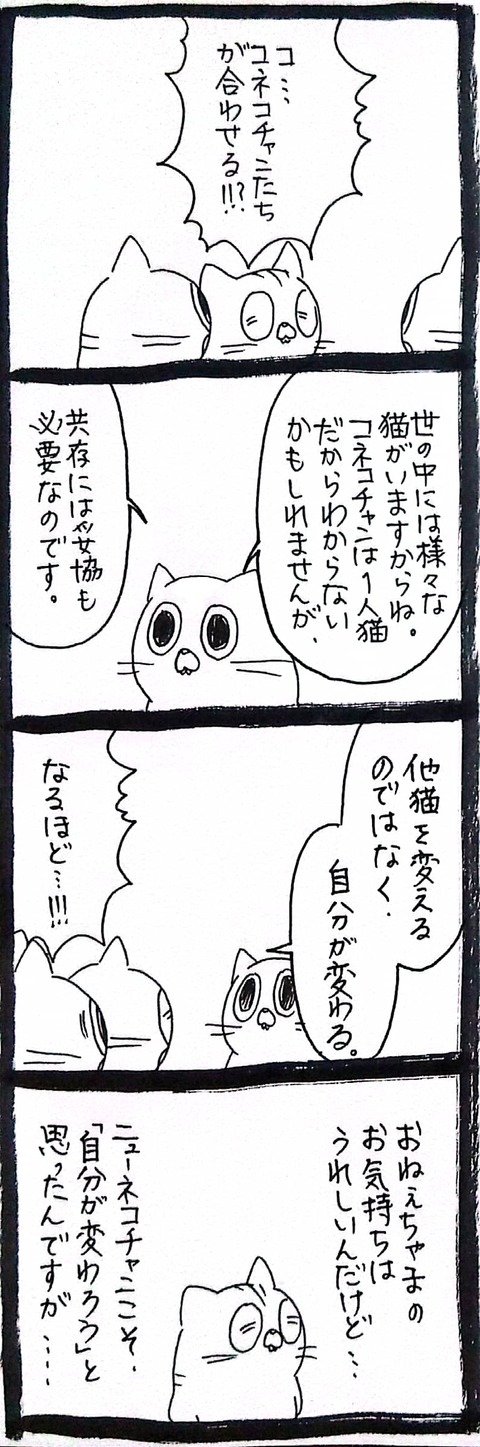 コ…
コネコチャンたち
が合わせる!!!?
世の中には様々な
猫がいますからね。
コネコチャンは1人猫
だからわからない
かもしれませんが、
共存には妥協も
必要なのです。
他猫を変える
のではなく、
自分が変わる。
なるほど…!!!
おねぇちゃまの
お気持ちは
うれしいんだけど…
ニューネコチャンこそ、
「自分が変わろう」と
思ったんですが……